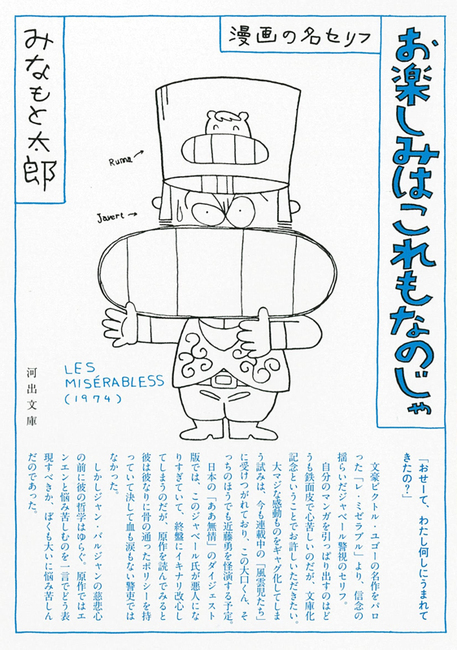 お楽しみはこれもなのじゃ
漫画の名セリフ
みなもと太郎
Ruma →
Javert →
LES
MISÉRABLESS
(1974)
河出文庫
「おせーて、わたし何しにうまれて
きたの?」
文豪ビクトル・ユゴーの名作をパロ
った「レ・ミゼラブル」より、信念の
揺らいだジャベール警視のセリフ。
自分のマンガを引っぱり出すのはど
うも鉄面皮で心苦しいのだが、文庫化
記念ということでお許しいただきたい。
大マジな感動ものをギャグ化してしま
う試みは、今も連載中の「風雲児たち」
に受けつがれており、この大口くん、そ
っちのほうでも近藤勇を怪演する予定。
日本の「ああ無情」のダイジェスト
版では、このジャベール氏が悪人にな
りすぎていて、終盤にイキナリ改心し
てしまうのだが、原作を読んでみると
彼は彼なりに骨の通ったポリシーを持
っていて決して血も涙もない警吏では
なかった。
しかしジャン・バルジャンの慈悲心
の前に彼の哲学はゆらぐ。原作ではエ
ンエンと悩み苦しむのを一言でどう表
現すべきか、ぼくも大いに悩み苦しん
だのであった。